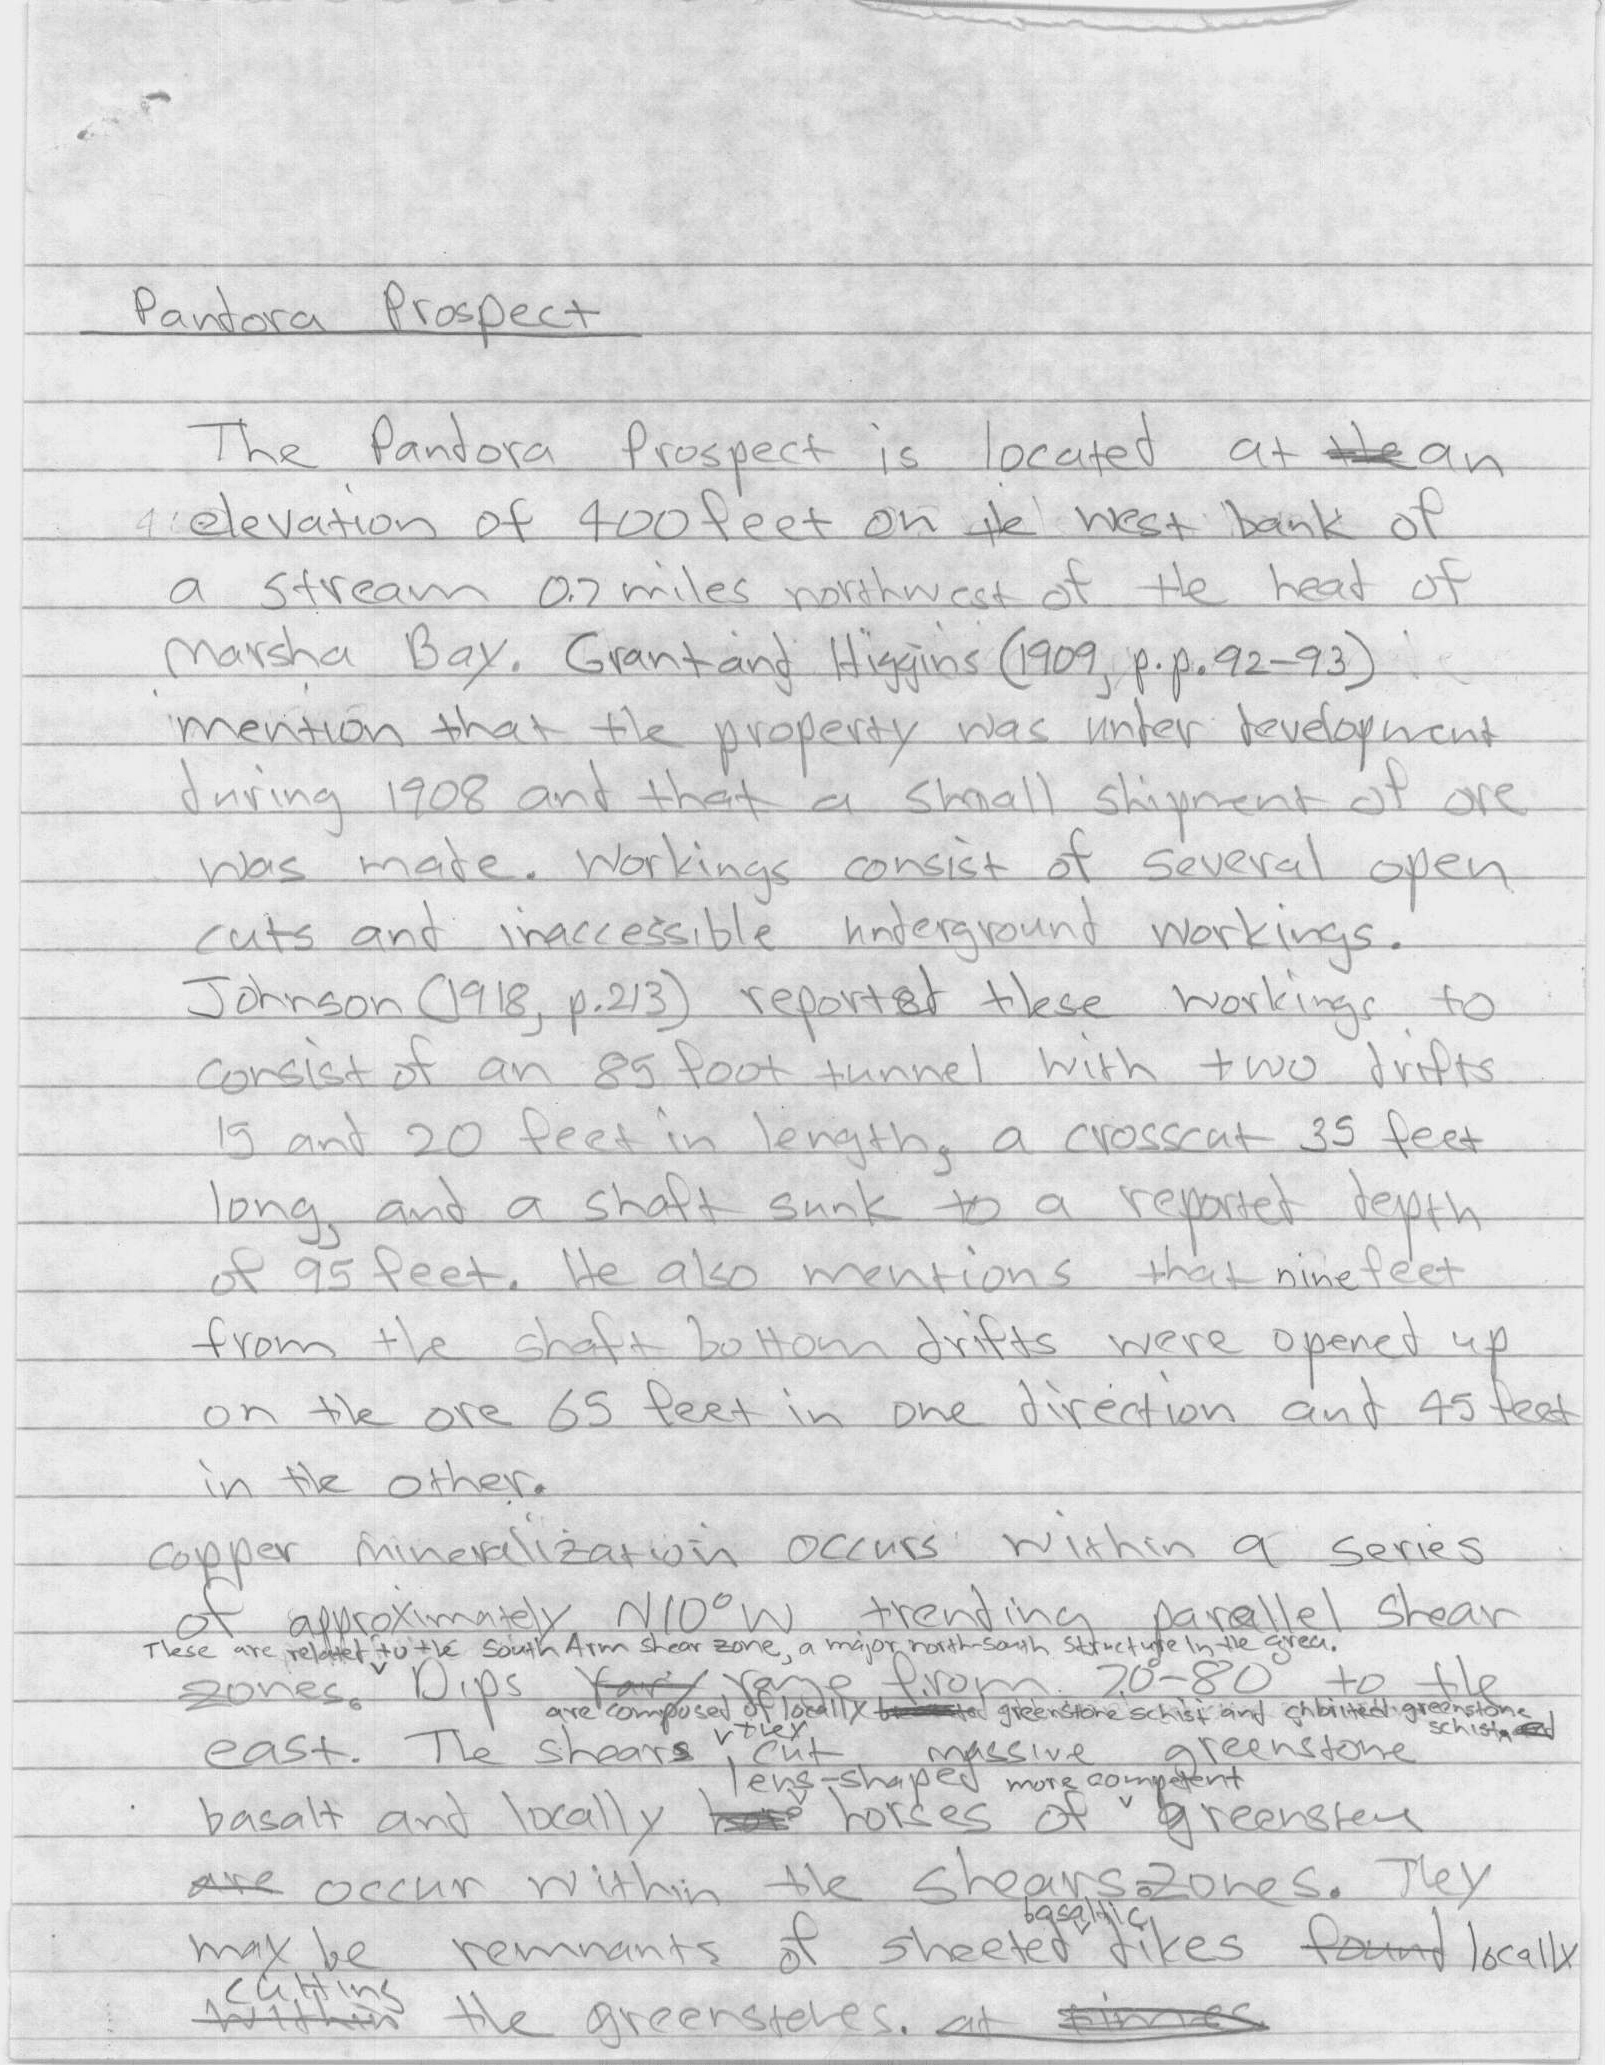 Pandora Prospect
The Pandora Prospect is located at the an
elevation of 400 feet on the west bank of
a stream 0.7 miles northwest of the head of
Marsha Bay. Grant and Higgins (1909, p.p. 92-93)
mention that the property was under development
during 1908 and that a small shipment of ore
was made. Workings consist of several open
cuts and inaccessible underground workings.
Johnson (1918, p.213) reported these workings to
consist of an 85 foot tunnel with two drifts
15 and 20 feet in length, a crosscut 35 feet
long, and a shaft sunk to a reported depth
of 95 feet. He also mentions that nine feet
from the shaft bottom drifts were opened up
on the ore 65 feet in one direction and 45 feet
in the other.
Copper mineralization occurs within a series
of approximately N10°W trending parallel shear
These are related to the South Arm shear zone, a major north-south structure in the area.
zones. Dips vary range from 70°-80° to the
are composed of locally greenstone schist and chloritized greenstone
schist, and
they
east. The shears cut massive greenstone
lens-shaped more competent
basalt and locally horses of greenstone
are occur within the shears zones. They
basaltic
may be remnants of sheeted dikes found locally
cutting
within the greenstones. at times